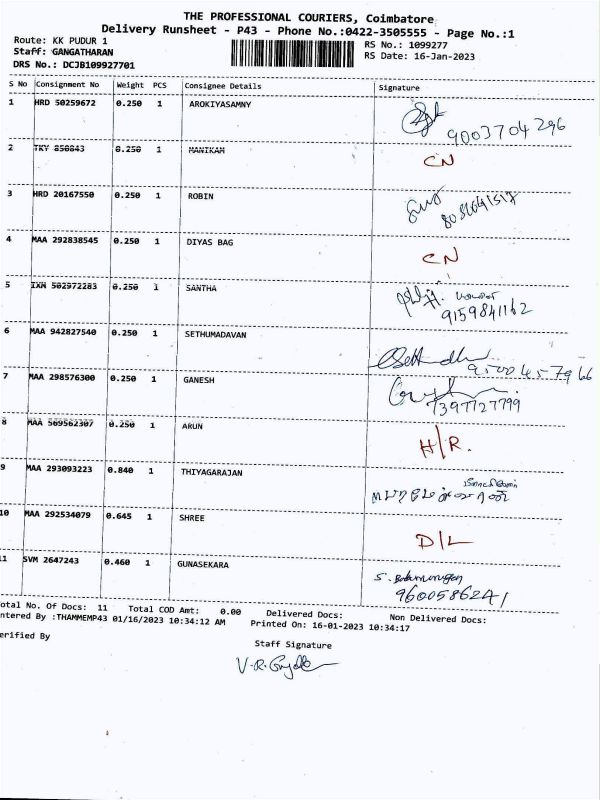 THE PROFESSIONAL COURIERS, Coimbatore
Delivery Runsheet - P43 - Phone No.:0422-3505555 - Page No.:1
Route: KK PUDUR 1 RS No.: 1099277
Staff: GANGATHARAN RS Date: 16-Jan-2023
DRS No.: DCJB109927701
S No Consignment No Weight PCS Consignee Details Signature
1 HRD 50259672 0.250 1 AROKIYASAMNY
9003704296
2 TKY 850843 0.250 1 MANIKAM
CN
3 HRD 20167550 0.250 1 ROBIN
4 MAA 292838545 0.250 1 DIYAS BAG
CN
5 IXM 502972283 0.250 1 SANTHA
9159841162
6 MAA 942827540 0.250 1 SETHUMADAVAN
9500457966
7 MAA 298576300 0.250 1 GANESH
7397727799
8 MAA 569562307 0.250 1 ARUN
H/R.
9 MAA 293093223 0.840 1 THIYAGARAJAN
10 MAA 292534079 0.645 1 SHREE
D/L
11 SVM 2647243 0.460 1 GUNASEKARA
9600586241
otal No. Of Docs: 11 Total COD Amt: 0.00 Delivered Docs: Non Delivered Docs:
ntered By :THAMMEMP43 01/16/2023 10:34:12 AM Printed On: 16-01-2023 10:34:17
erified By
Staff Signature